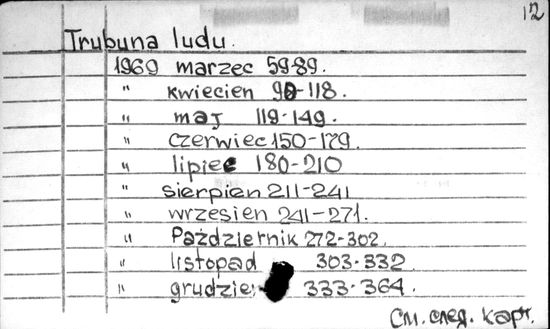 12
Trubuna ludu.
1969 marzec 59-89.
" kwiecien 90-118.
" maj 119-149.
" czerwiec 150-179.
" lipiec 180-210
" sierpien 211-241
" wrzesien 241-271.
" Październik 272-302.
" listopad 303-332.
" grudzie 333-364.
См. след. карт.